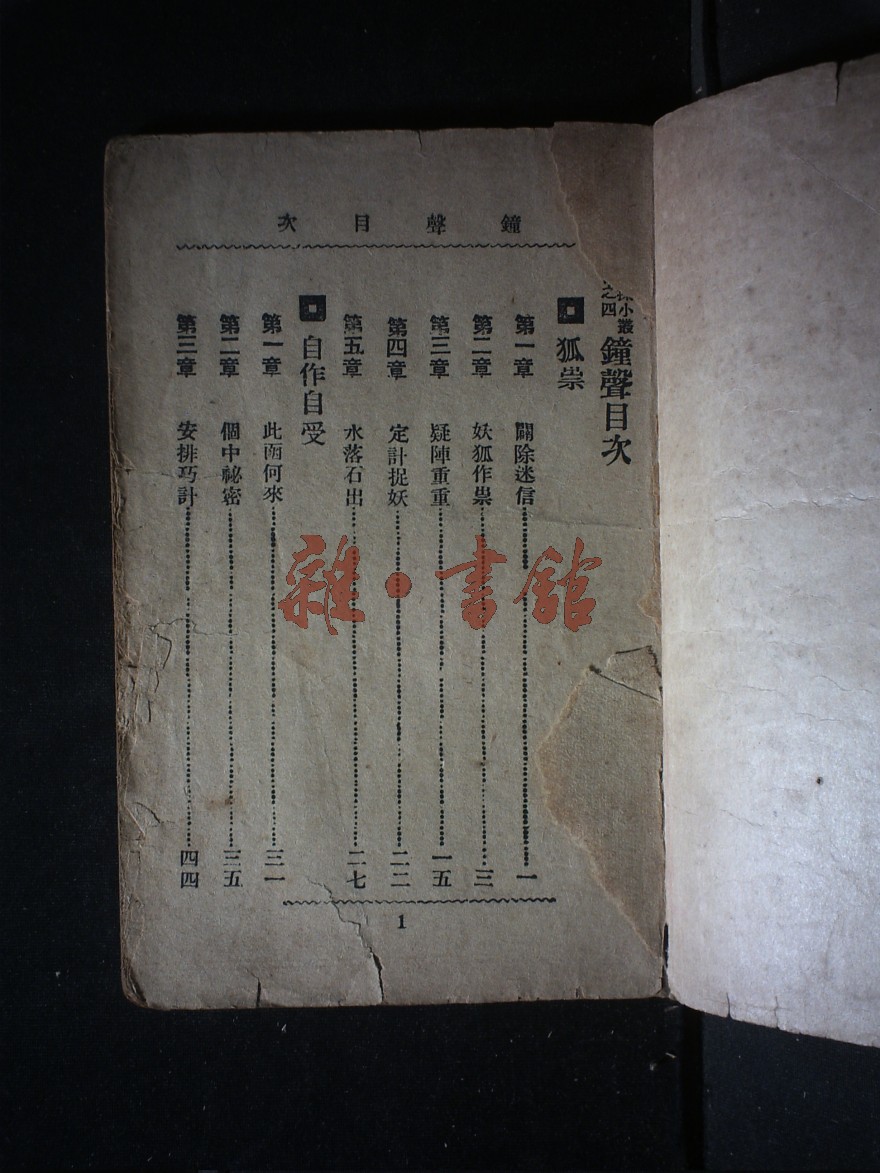 鐘聲目次
小叢
之四
鐘聲目次
狐祟
第一章 闢除迷信…………一
第二章 妖狐作祟…………三
第三章 疑陣重重…………一五
第四章 定計捉妖…………二二
第五章 水落石出…………二七
自作自受
第一章 此函何來…………三一
第二章 個中祕密…………三五
第三章 安排巧計…………四四
1
雜·書館